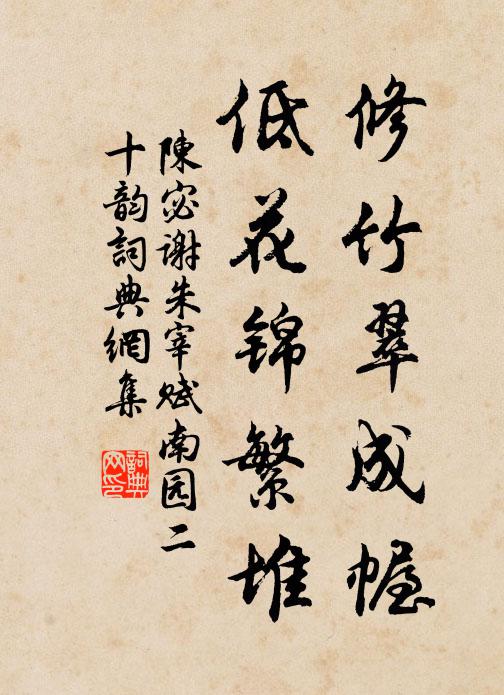 修竹翠成幄
低花锦繁堆
陳宓谢朱宰赋南园二
十韵詞典網集
詞典
网印